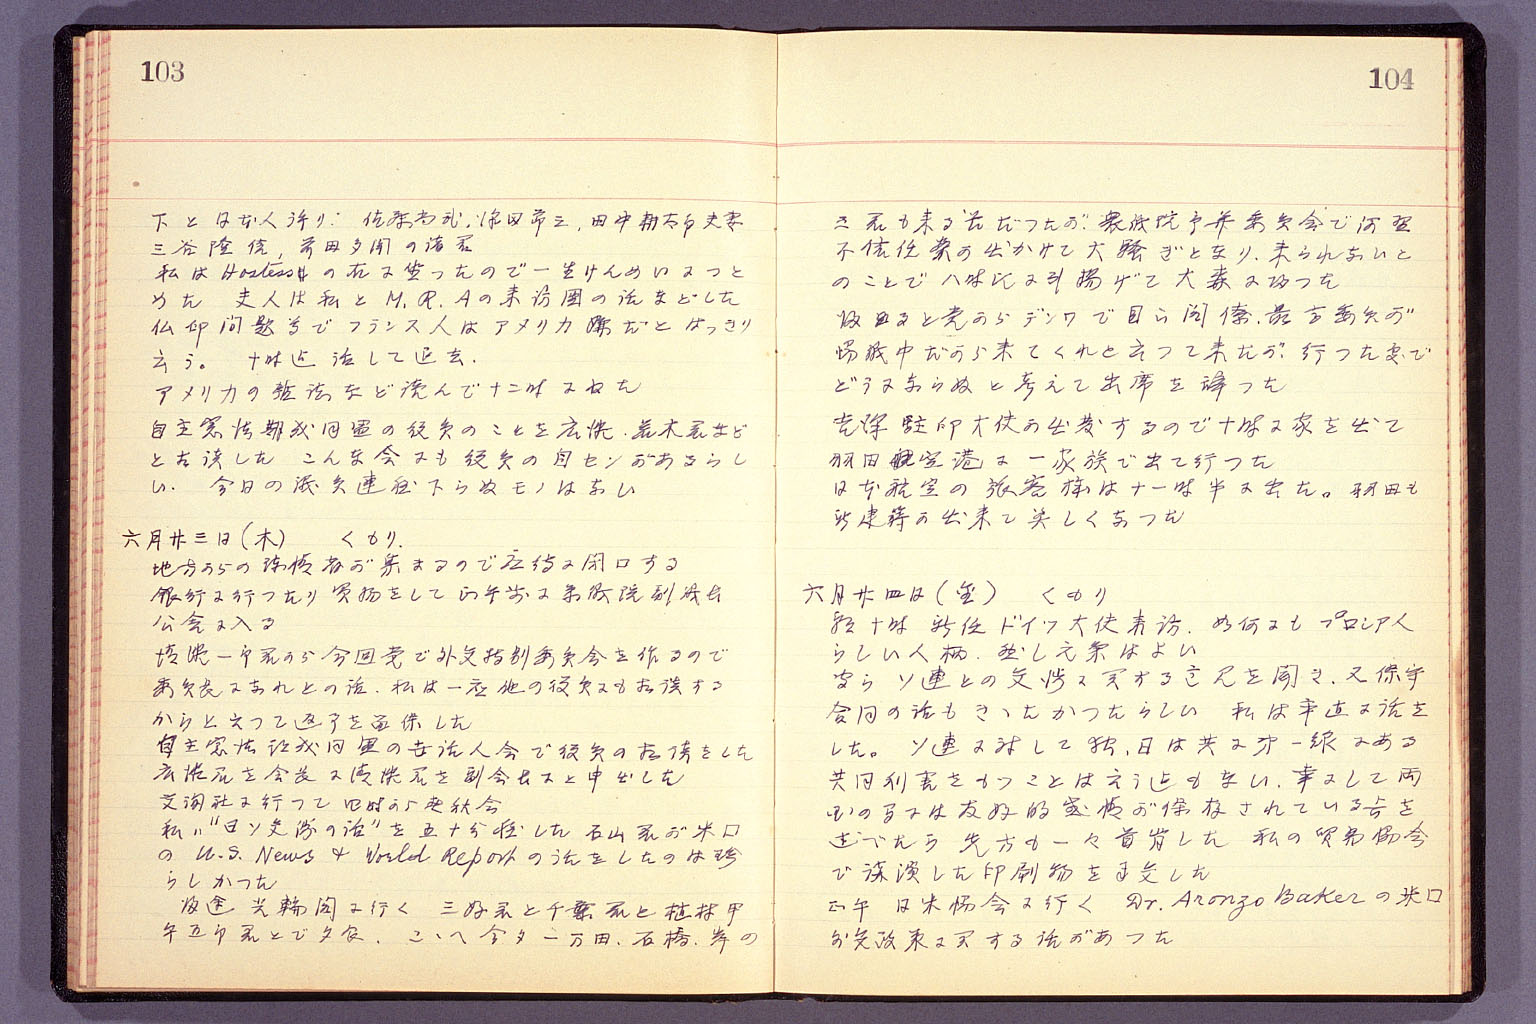 103
下と日本人許り: 佐藤尚武, 保田常三, 田中耕太郎夫妻
三谷隆信, 前田多聞の諸君
私はHostessの右に坐つたので一生けんめいにつと
めた 夫人は私とM.R.Aの来訪団の話などした
仏印問題等でフランス人はアメリカ嫌だとはつきり
云う。 十時辺 話して退去.
アメリカの雑誌など読んで十二時にねた
自主憲法期成同盟の役員のことを広瀬.荒木君など
と相談した こんな会にも役員の自センがあるらし
い. 今日の議員連 下らぬモノはない
六月廿三日(木) くもり.
地方からの陳情者が集まるので応待に閉口する
銀行に行つたり買物をして正午 に衆議院副議長
公舎に入る
清瀬一郎君から今回党で外交特別委員会を作るので
委員長になれとの話. 私は一応他の役員にも相談する
からと云つて返事を留保した
自主憲法期成同盟の世話人会で役員の相談をした
広瀬君を会長に清瀬君を副会長にと申出した
交詢社に行つて四時から 会
私ハ"日ソ交渉の話"を五十分程した 石山君が米国
の U.S. News & World Report の話をしたのは珍
らしかつた
帰途 光輪閣に行く 三好君と千葉君と植村甲
午五郎君とで夕食. こゝへ今夕一万田、石橋、岸の
104
三君も来る筈だつたが.衆議院予算委員会で河野
不信任案が出かけて大騒ぎとなり.来られないと
のことで八時頃に引揚げて大森に帰つた
帰宅ると党からデンワで自ら閣僚.最古委員が
協議中だから来てくれと云つて来たが.行つた処で
どうにもならぬと考えて出席を謝つた
吉沢駐印大使が出発するので十時に家を出て
羽田航空港に一家族で出て行つた
日本航空の旅客機は十一時半に出た。羽田も
新建築が出来て美しくなつた
六月廿四日(金) くもり
朝十時 新任ドイツ大使来訪. 如何にもプロシア人
らしい人柄. 然し元気はよい
彼らソ連との交渉に関する意見を聞き、又保守
合同の話もきゝたかつたらしい 私は率直に話を
した。ソ連に対して独、日は共に第一線にある
共同利害をもつことは云う迄もない. 幸にして両
国の間には友好的感情が保存されている旨を
述べたら 先方も一々首肯した 私の貿易協会
で講演した印刷物を手交した
正午 日米協会に行く Dr. Aronzo Bakerの米国
外交政策に関する話があつた